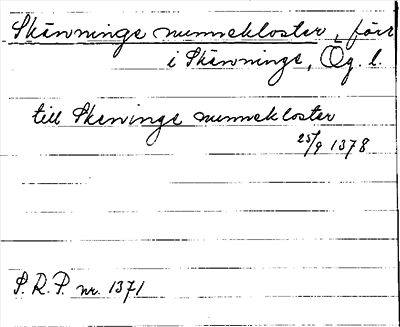 Skänninge nunnekloster, förr
i Skänninge, Ög. l.
till Skeninge nunnekloster
25/9 1378
S.R.P. nr. 1371